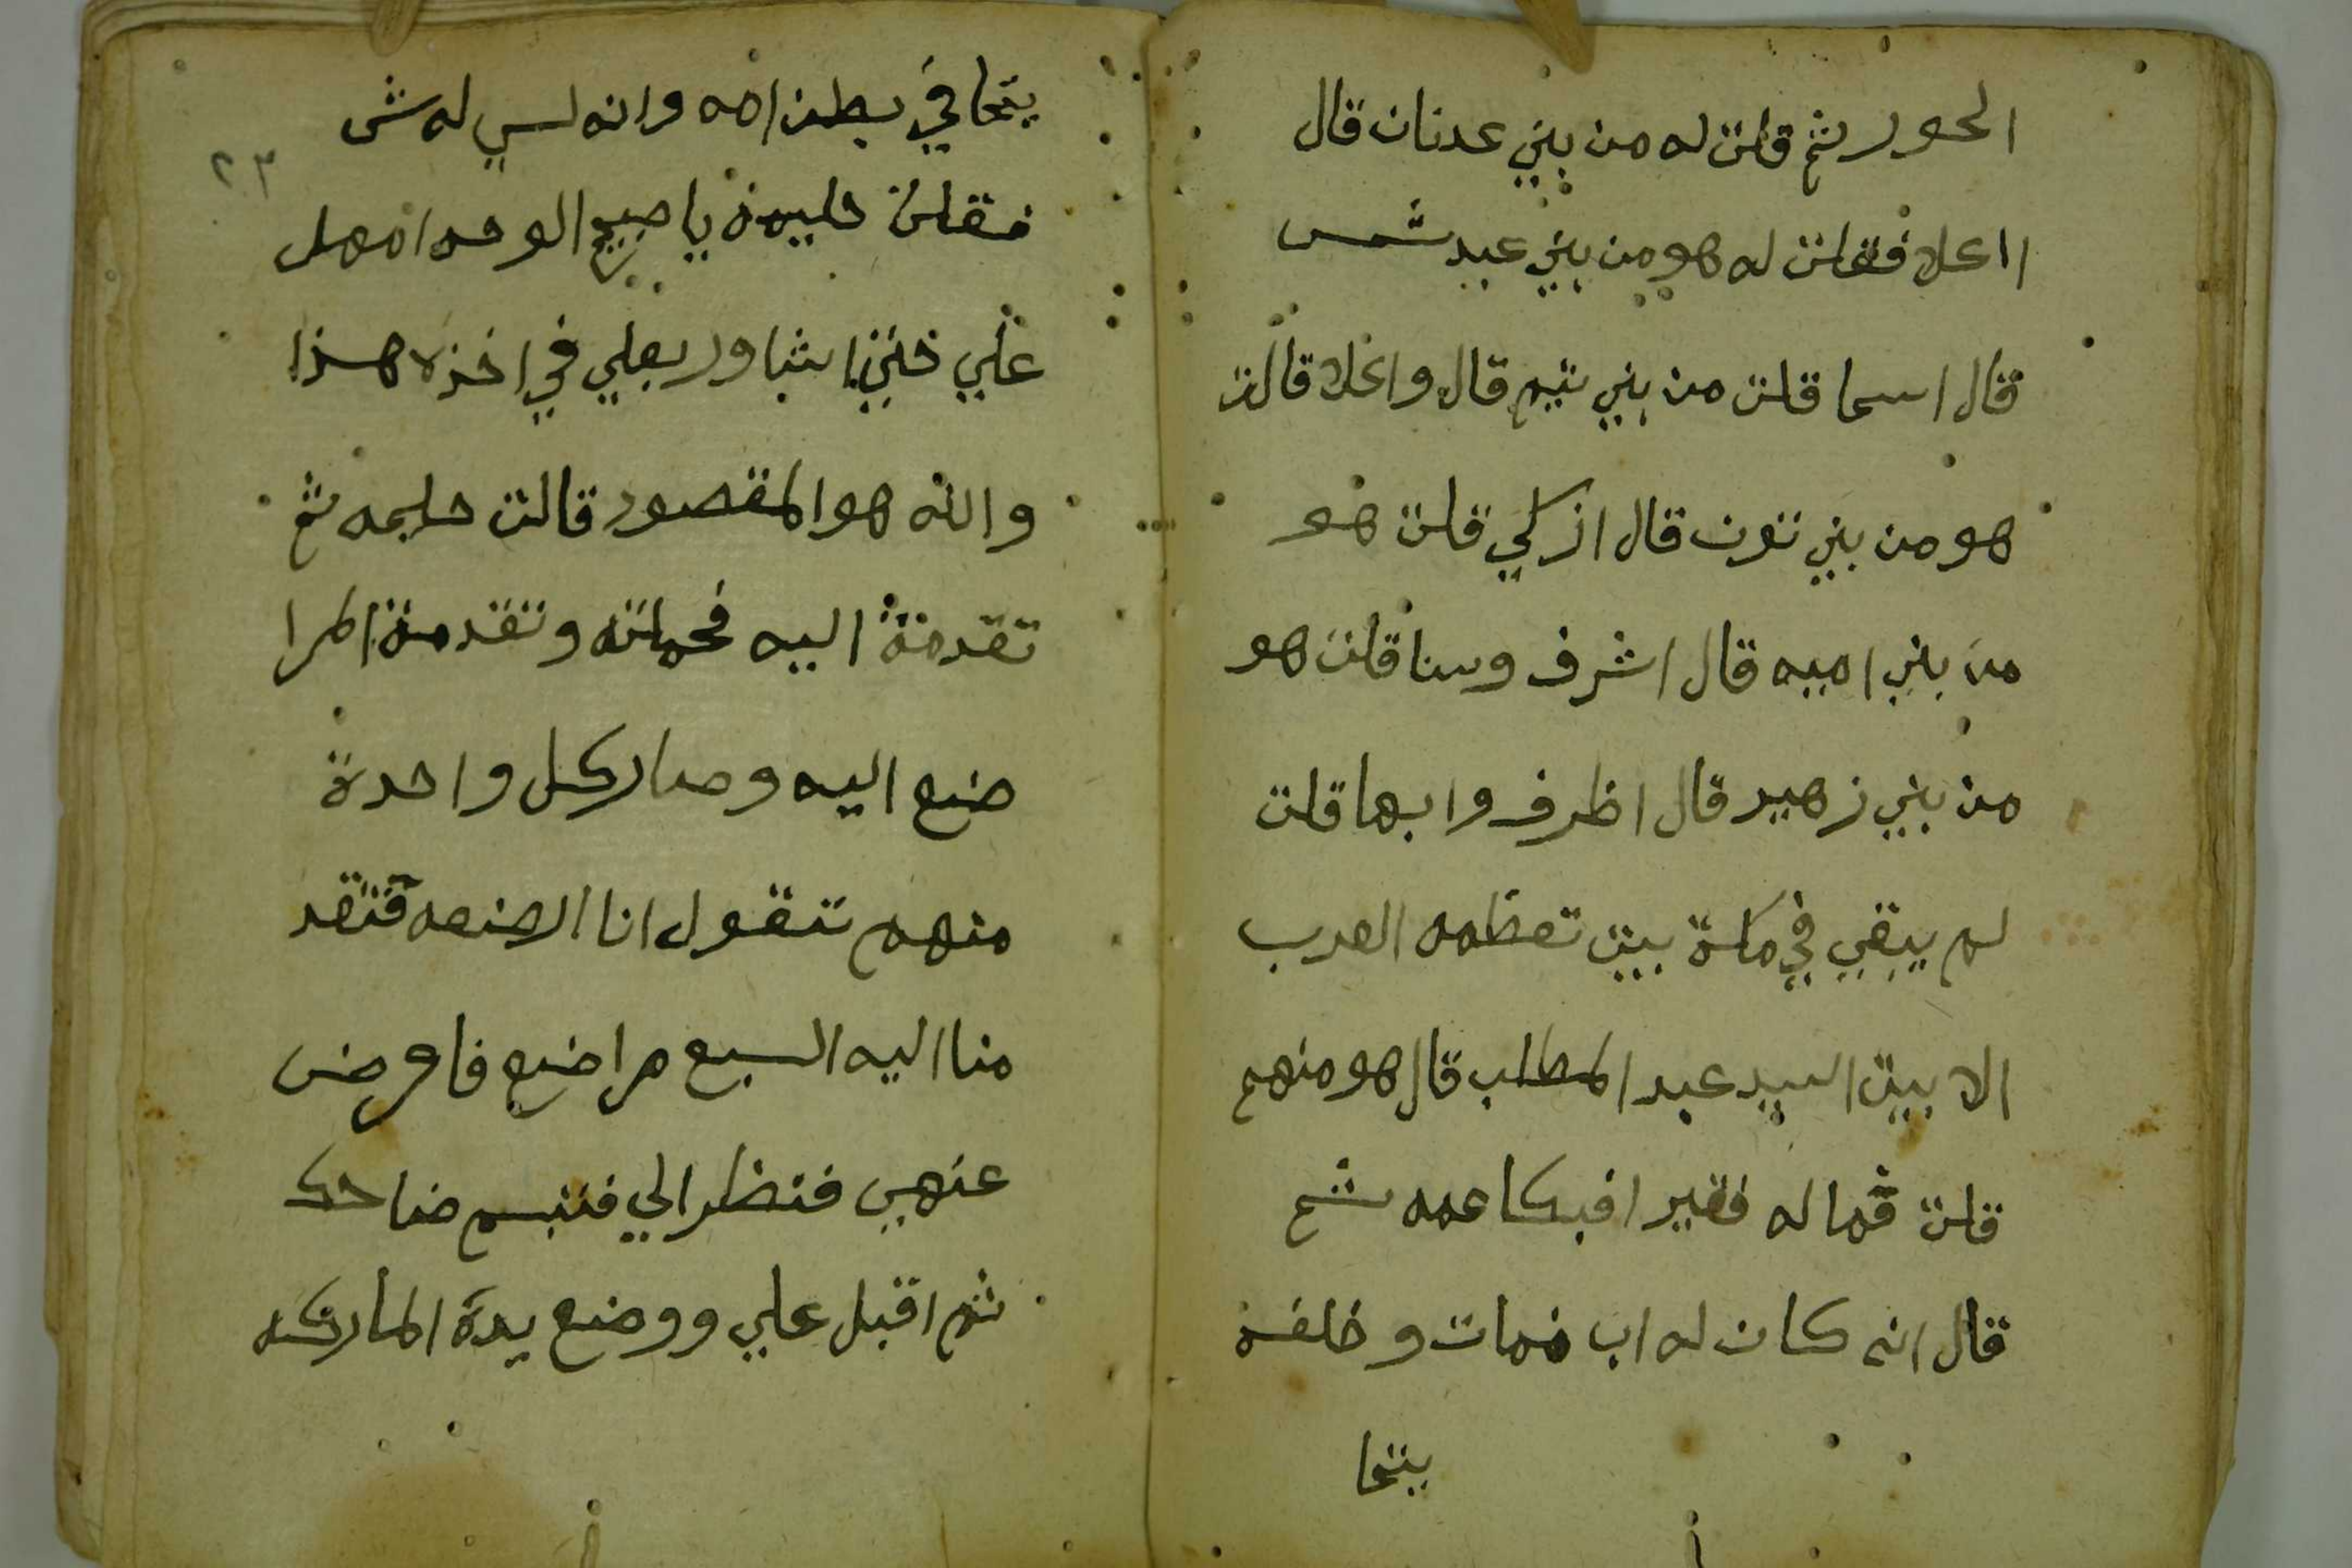 الحور ثم قلت له من بني عدنان قال
ااعلا فقلت له هو من بني عبد شمس
قال اسما قلت من بني تيم قال واغلا قالت
هو من بني قال ازكي قلت هو
من بني اميه قال اشرف وسنا قلت هو
من بني زهير قال اظرف وابها قلت
لم يبقي في مكة بيت تعظمه العرب
الا بيت السيد عبد المطلب قال هو منهم
قلت فما له فقير افبكا عمه ثم
قال انه كان له اب فمات وخلفه
يتما
يتما في بطن امه وانه لسي له ش
فقلت حليمة يا صبيح الوجه امهل
علي حتي اشاور بعلي في اخذه هذا
والله هو المقصور قالت حليمه ثم
تقدمة اليه فحملته وتقدمة المرا
ضع اليه وصار كل واحدة
منهم تقول انا ارضعه فتقد
منا اليه السبع مراضع فاعرض
عنهي فنظر الي فتبسم ضاحك
ثم اقبل علي ووضع يدة الماركه
٢٣